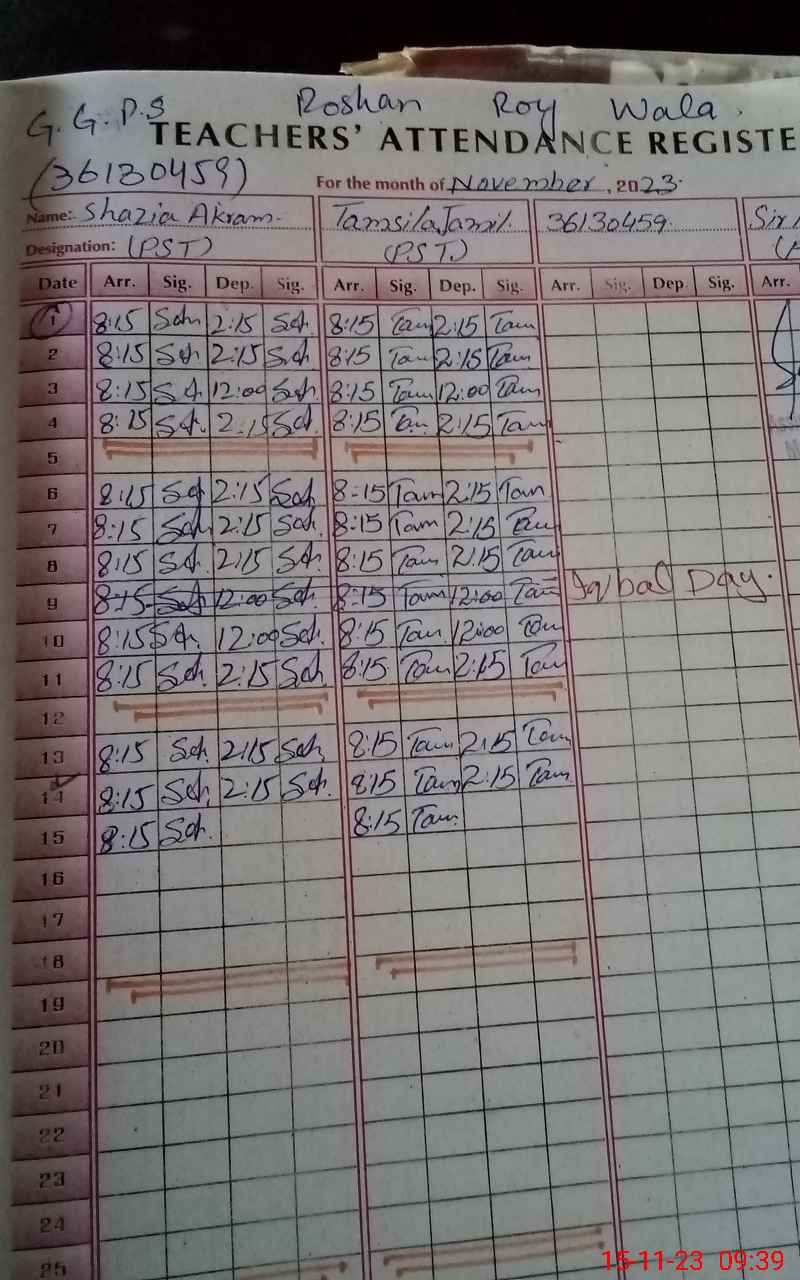 G.G.P.S Roshan Roy Wala.
TEACHERS' ATTENDANCE REGISTE
(36130459) For the month of November, 2023.
Name: Shazia Akram. Tamsila Jamil. 36130459. Sir
Designation: (PST) (PST.)
Date Arr. Sig. Dep. Sig. Arr. Sig. Dep. Sig. Arr. Sig. Dep Sig. Arr.
1 8:15 2:15 8:15 Tam 2:15 Tam
2 8:15 2:15 8:15 Tam 2:15 Tam
3 8:15 12:00 8:15 Tam 12:00 Tam
4 8:15 2:15 8:15 Tam 2:15 Tam
5
6 8:15 2:15 8:15 Tam 2:15 Tam
7 8:15 2:15 8:15 Tam 2:15 Tam
8 8:15 2:15 8:15 Tam 2:15 Tam
9 8:15 12:00 8:15 Tam 12:00 Tam Iqbal Day.
10 8:15 12:00 8:15 Tam 12:00 Tam
11 8:15 2:15 8:15 Tam 2:15 Tam
12
13 8:15 2:15 8:15 Tam 2:15 Tam
14 8:15 2:15 8:15 Tam 2:15 Tam
15 8:15 8:15 Tam
16
17
18
19
20
21
22
23
24
25
15-11-23 09:39